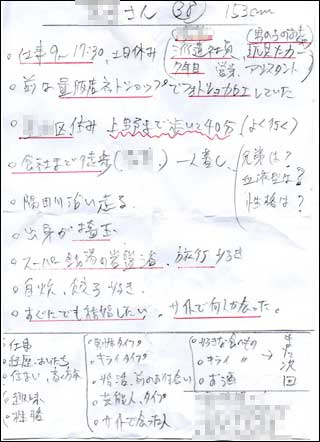 さん (38) 153cm
・仕事9〜17:30、土日休み
派遣社員
7年目 営業アシスタント
・前は量販店ネトショップでフォトショ加工していた
・区住み 上野まで歩いて40分(よく行く)
・会社まで徒歩( )一人暮し
兄弟は?
血液型は?
性格は?
・隅田川沿い走る
・出身が埼玉
・スーパー銭湯の岩盤浴、旅行好き
・餃子好き
・すぐにでも結婚したい。サイトで何人か会った。
・仕事
・住まい、
・趣味
・性格
・男性タイプ
・キライタイプ
・婚活、前のお付合い
・芸能人タイプ
・サイトで会った人
・好きな食べもの
・キライ 〃
・お酒
→
次回